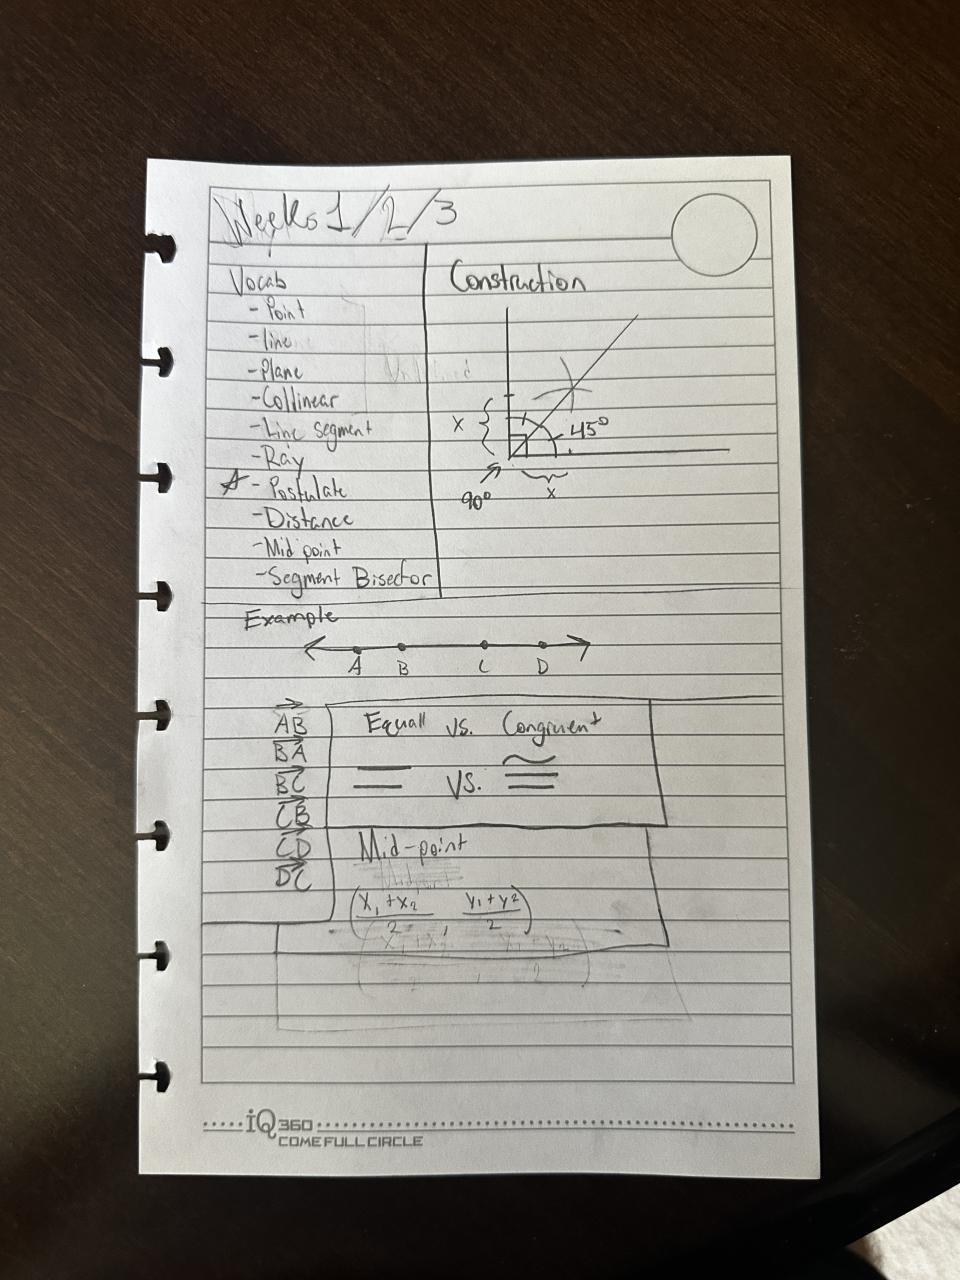 Weeks 1/2/3
Vocab
- Point
- line
- Plane
- Collinear
- Line segment
- Ray
- Postulate
- Distance
- Mid point
- Segment Bisector
Construction
x
45°
90°
x
Example
A B C D
AB
BA
BC
CB
CD
DC
Equall vs. Congruent
= vs. ≅
Mid-point
(x₁+x₂/2, y₁+y2/2)
iQ360
COME FULL CIRCLE